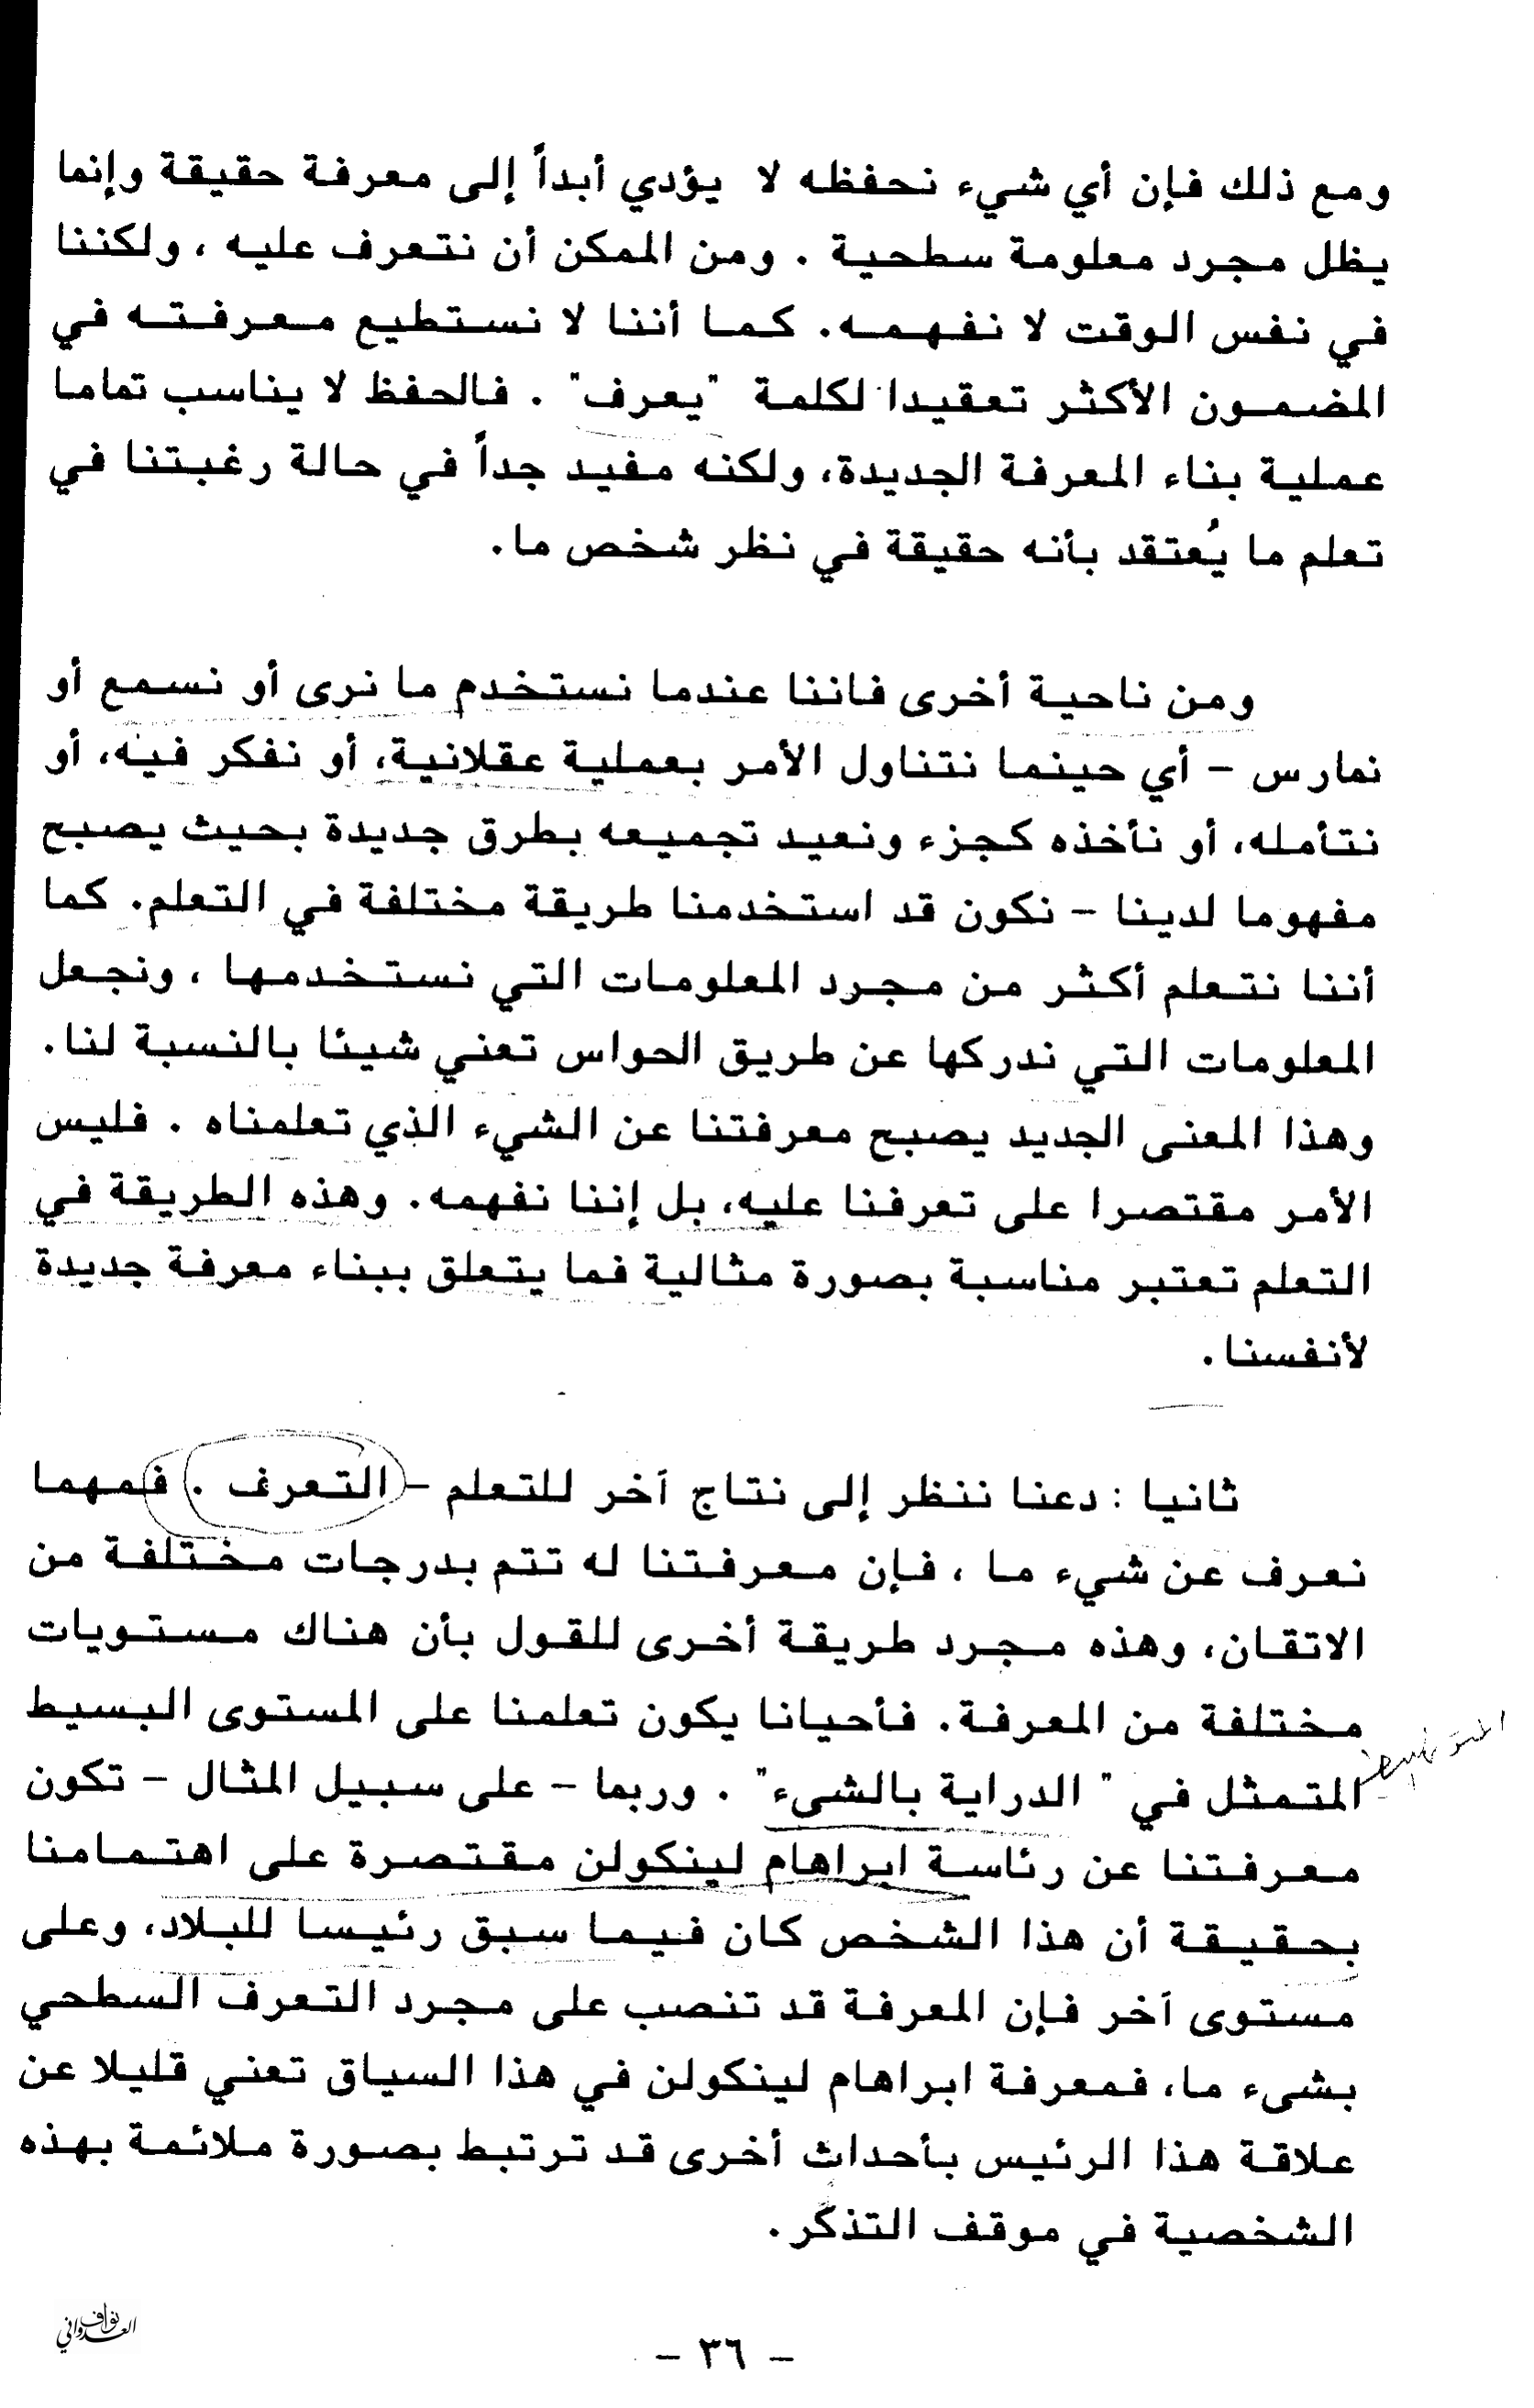 ومع ذلك فإن أي شيء نحفظه لا يؤدي أبداً إلى معرفة حقيقة وإنما
يظل مجرد معلومة سطحية . ومن الممكن أن نتعرف عليه ، ولكننا
في نفس الوقت لا نفهمه. كما أننا لا نستطيع معرفته في
المضمون الأكثر تعقيدا لكلمة "يعرف" . فالحفظ لا يناسب تماما
عملية بناء المعرفة الجديدة، ولكنه مفيد جداً في حالة رغبتنا في
تعلم ما يُعتقد بأنه حقيقة في نظر شخص ما.
ومن ناحية أخرى فاننا عندما نستخدم ما نرى أو نسمع أو
نمارس - أي حينما نتناول الأمر بعملية عقلانية، أو نفكر فيه، أو
نتأمله، أو نأخذه كجزء ونعيد تجميعه بطرق جديدة بحيث يصبح
مفهوما لدينا - نكون قد استخدمنا طريقة مختلفة في التعلم. كما
أننا نتعلم أكثر من مجرد المعلومات التي نستخدمها ، ونجعل
المعلومات التي ندركها عن طريق الحواس تعني شيئا بالنسبة لنا.
وهذا المعنى الجديد يصبح معرفتنا عن الشيء الذي تعلمناه . فليس
الأمر مقتصرا على تعرفنا عليه، بل إننا نفهمه. وهذه الطريقة في
التعلم تعتبر مناسبة بصورة مثالية فما يتعلق ببناء معرفة جديدة
لأنفسنا.
ثانيا : دعنا ننظر إلى نتاج آخر للتعلم - التعرف . فمهما
نعرف عن شيء ما ، فإن معرفتنا له تتم بدرجات مختلفة من
الاتقان، وهذه مجرد طريقة أخرى للقول بأن هناك مستويات
مختلفة من المعرفة. فأحيانا يكون تعلمنا على المستوى البسيط
المتمثل في " الدراية بالشىء" . وربما - على سبيل المثال - تكون
معرفتنا عن رئاسة ابراهام لينكولن مقتصرة على اهتمامنا
بحقيقة أن هذا الشخص كان فيما سبق رئيسا للبلاد، وعلى
مستوى آخر فإن المعرفة قد تنصب على مجرد التعرف السطحي
بشىء ما، فمعرفة ابراهام لينكولن في هذا السياق تعني قليلا عن
علاقة هذا الرئيس بأحداث أخرى قد ترتبط بصورة ملائمة بهذه
الشخصية في موقف التذكر.
نواف
العدواني
- ٣٦ -